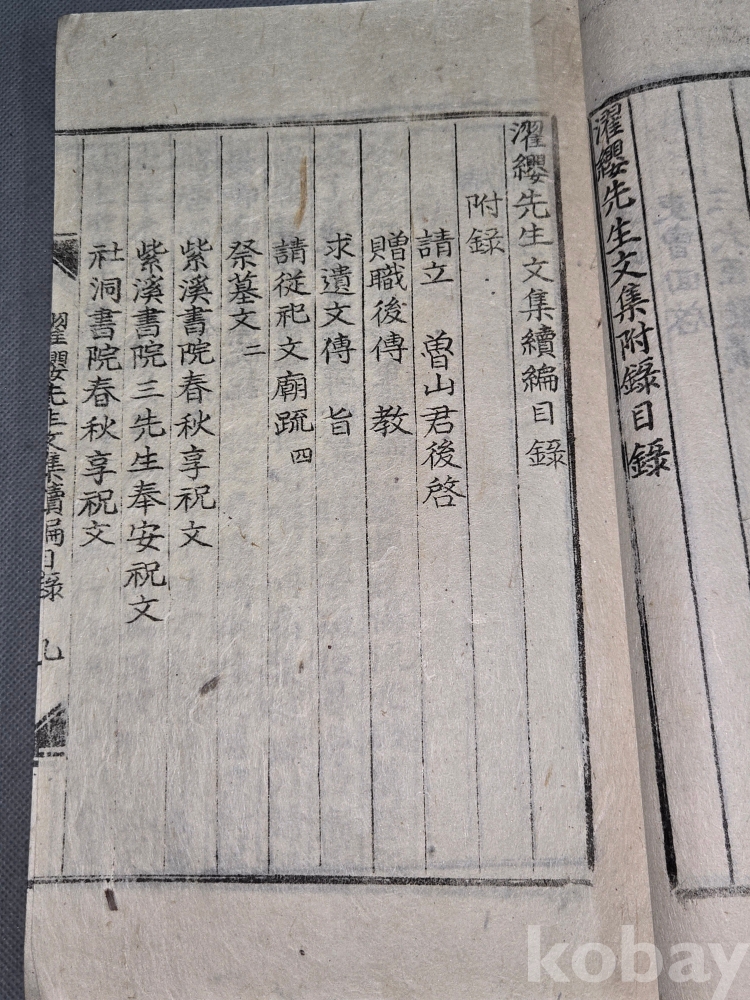 濯纓先生文集附錄目錄
濯纓先生文集續編目錄
附錄
請立 魯山君後啓
贈職後傳 教
求遺文傳 旨
請從祀文廟疏四
祭墓文二
紫溪書院春秋享祝文
紫溪書院三先生奉安祝文
社洞書院春秋享祝文
濯纓先生文集續編目錄 九
kobay